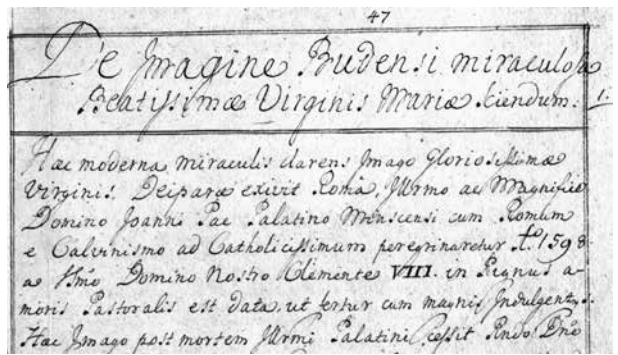 47
De Imagine Budensi miraculosa
Beatissimæ Virginis Mariæ sciendum. 1.
Hæc moderna miraculis clarens Imago Gloriosissimæ
Virginis Deiparæ exivit Roma, Illrmo ac Magnifico
Domino Joanni Pac Palatino Minscensi cum Romam
e Calvinismo ad Catholicissimum peregrinaretur Ao. 1598
a Ssmo Domino Nostro Clemente VIII. in Pignus a-
moris Pastoralis est data, ut fertur cum magnis Indulgentijs.
Hæc Imago post mortem Illrmi Palatini cessit Rndo Dno